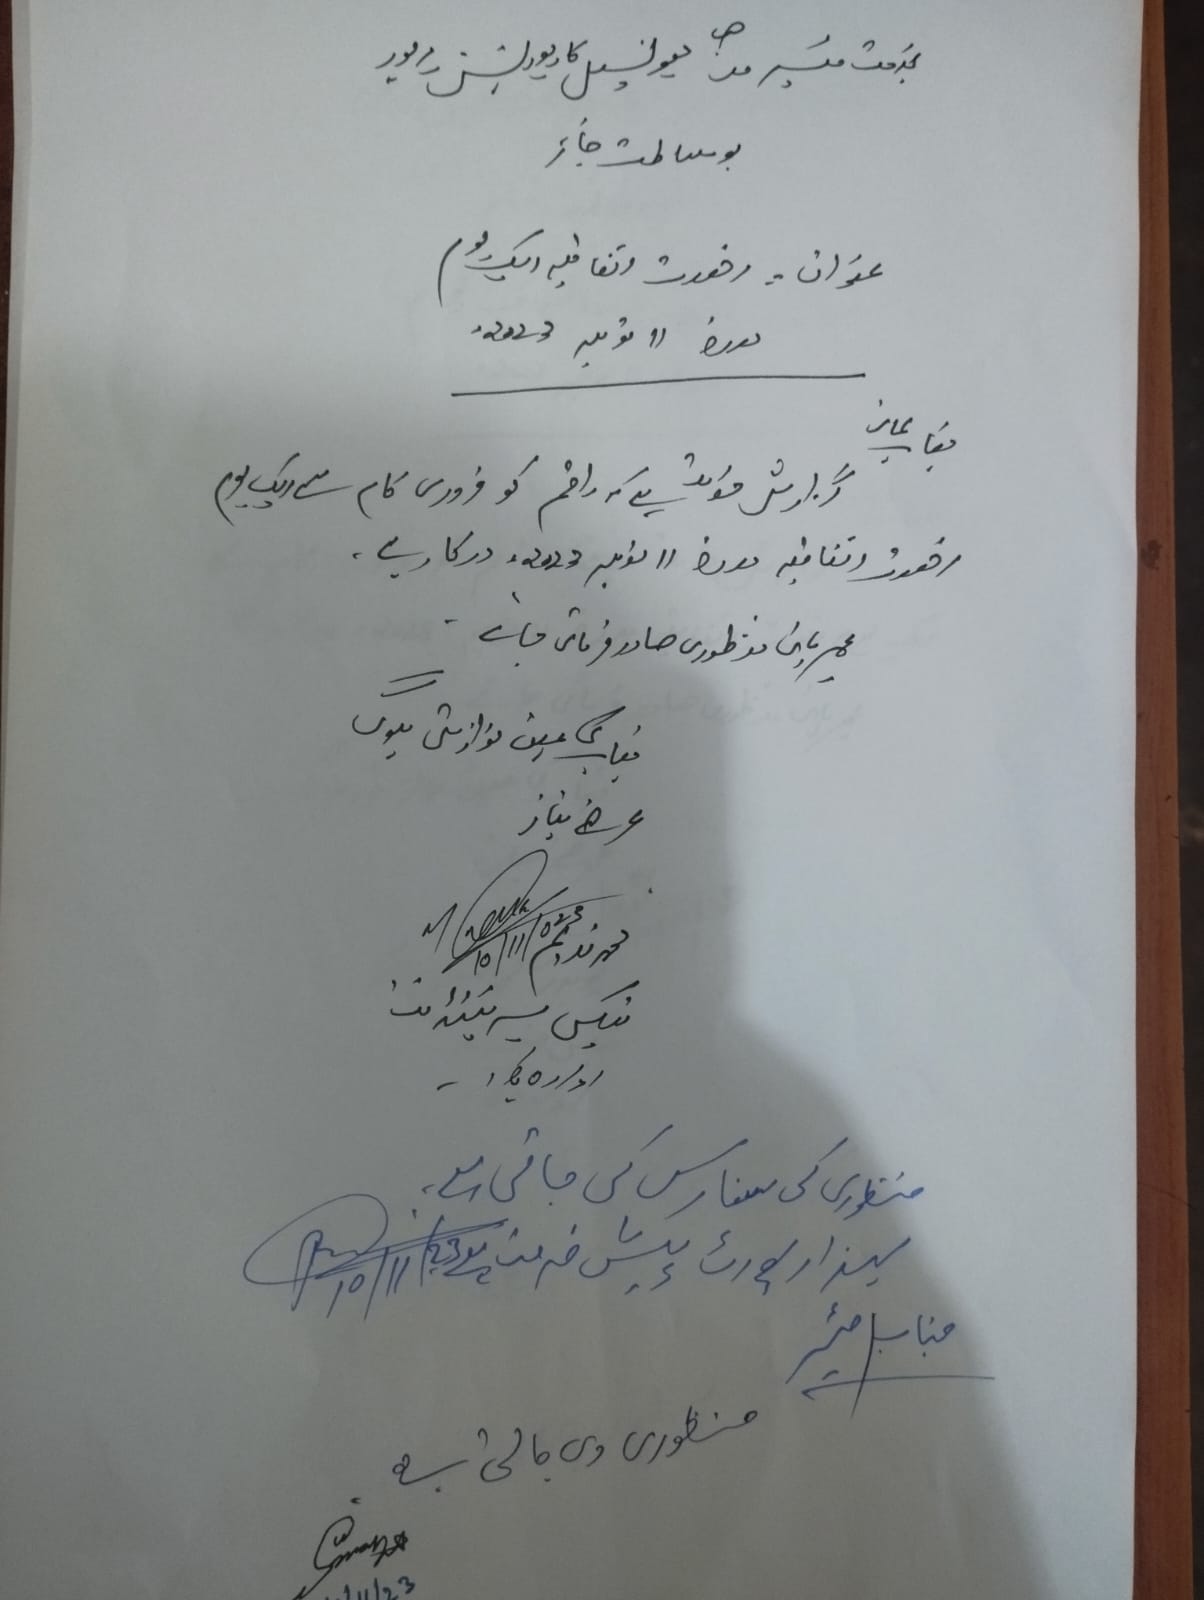 بخدمت میئر صاحب میونسپل کارپوریشن میرپور
بوساطت جائز
عنوان :۔ رخصت اتفاقیہ ایک یوم
مورخہ 11 نومبر 2023ء
جناب عالی
گزارش خدمت ہے کہ راقم کو ضروری کام سے ایک یوم
رخصت اتفاقیہ مورخہ 11 نومبر 2023ء درکار ہے۔
مہربانی منظوری صادر فرمائی جائے۔
جناب کی عین نوازش ہوگی
عرضے نیاز
10/11/023
محمد ندیم
ٹیکس سپرنٹنڈنٹ
ادارہ ہذا۔
منظوری کی سفارش کی جاتی ہے۔
لہذا رپورٹ پیش خدمت ہے
10/11/23
جناب میئر
منظوری دی جاتی ہے۔
/11/23